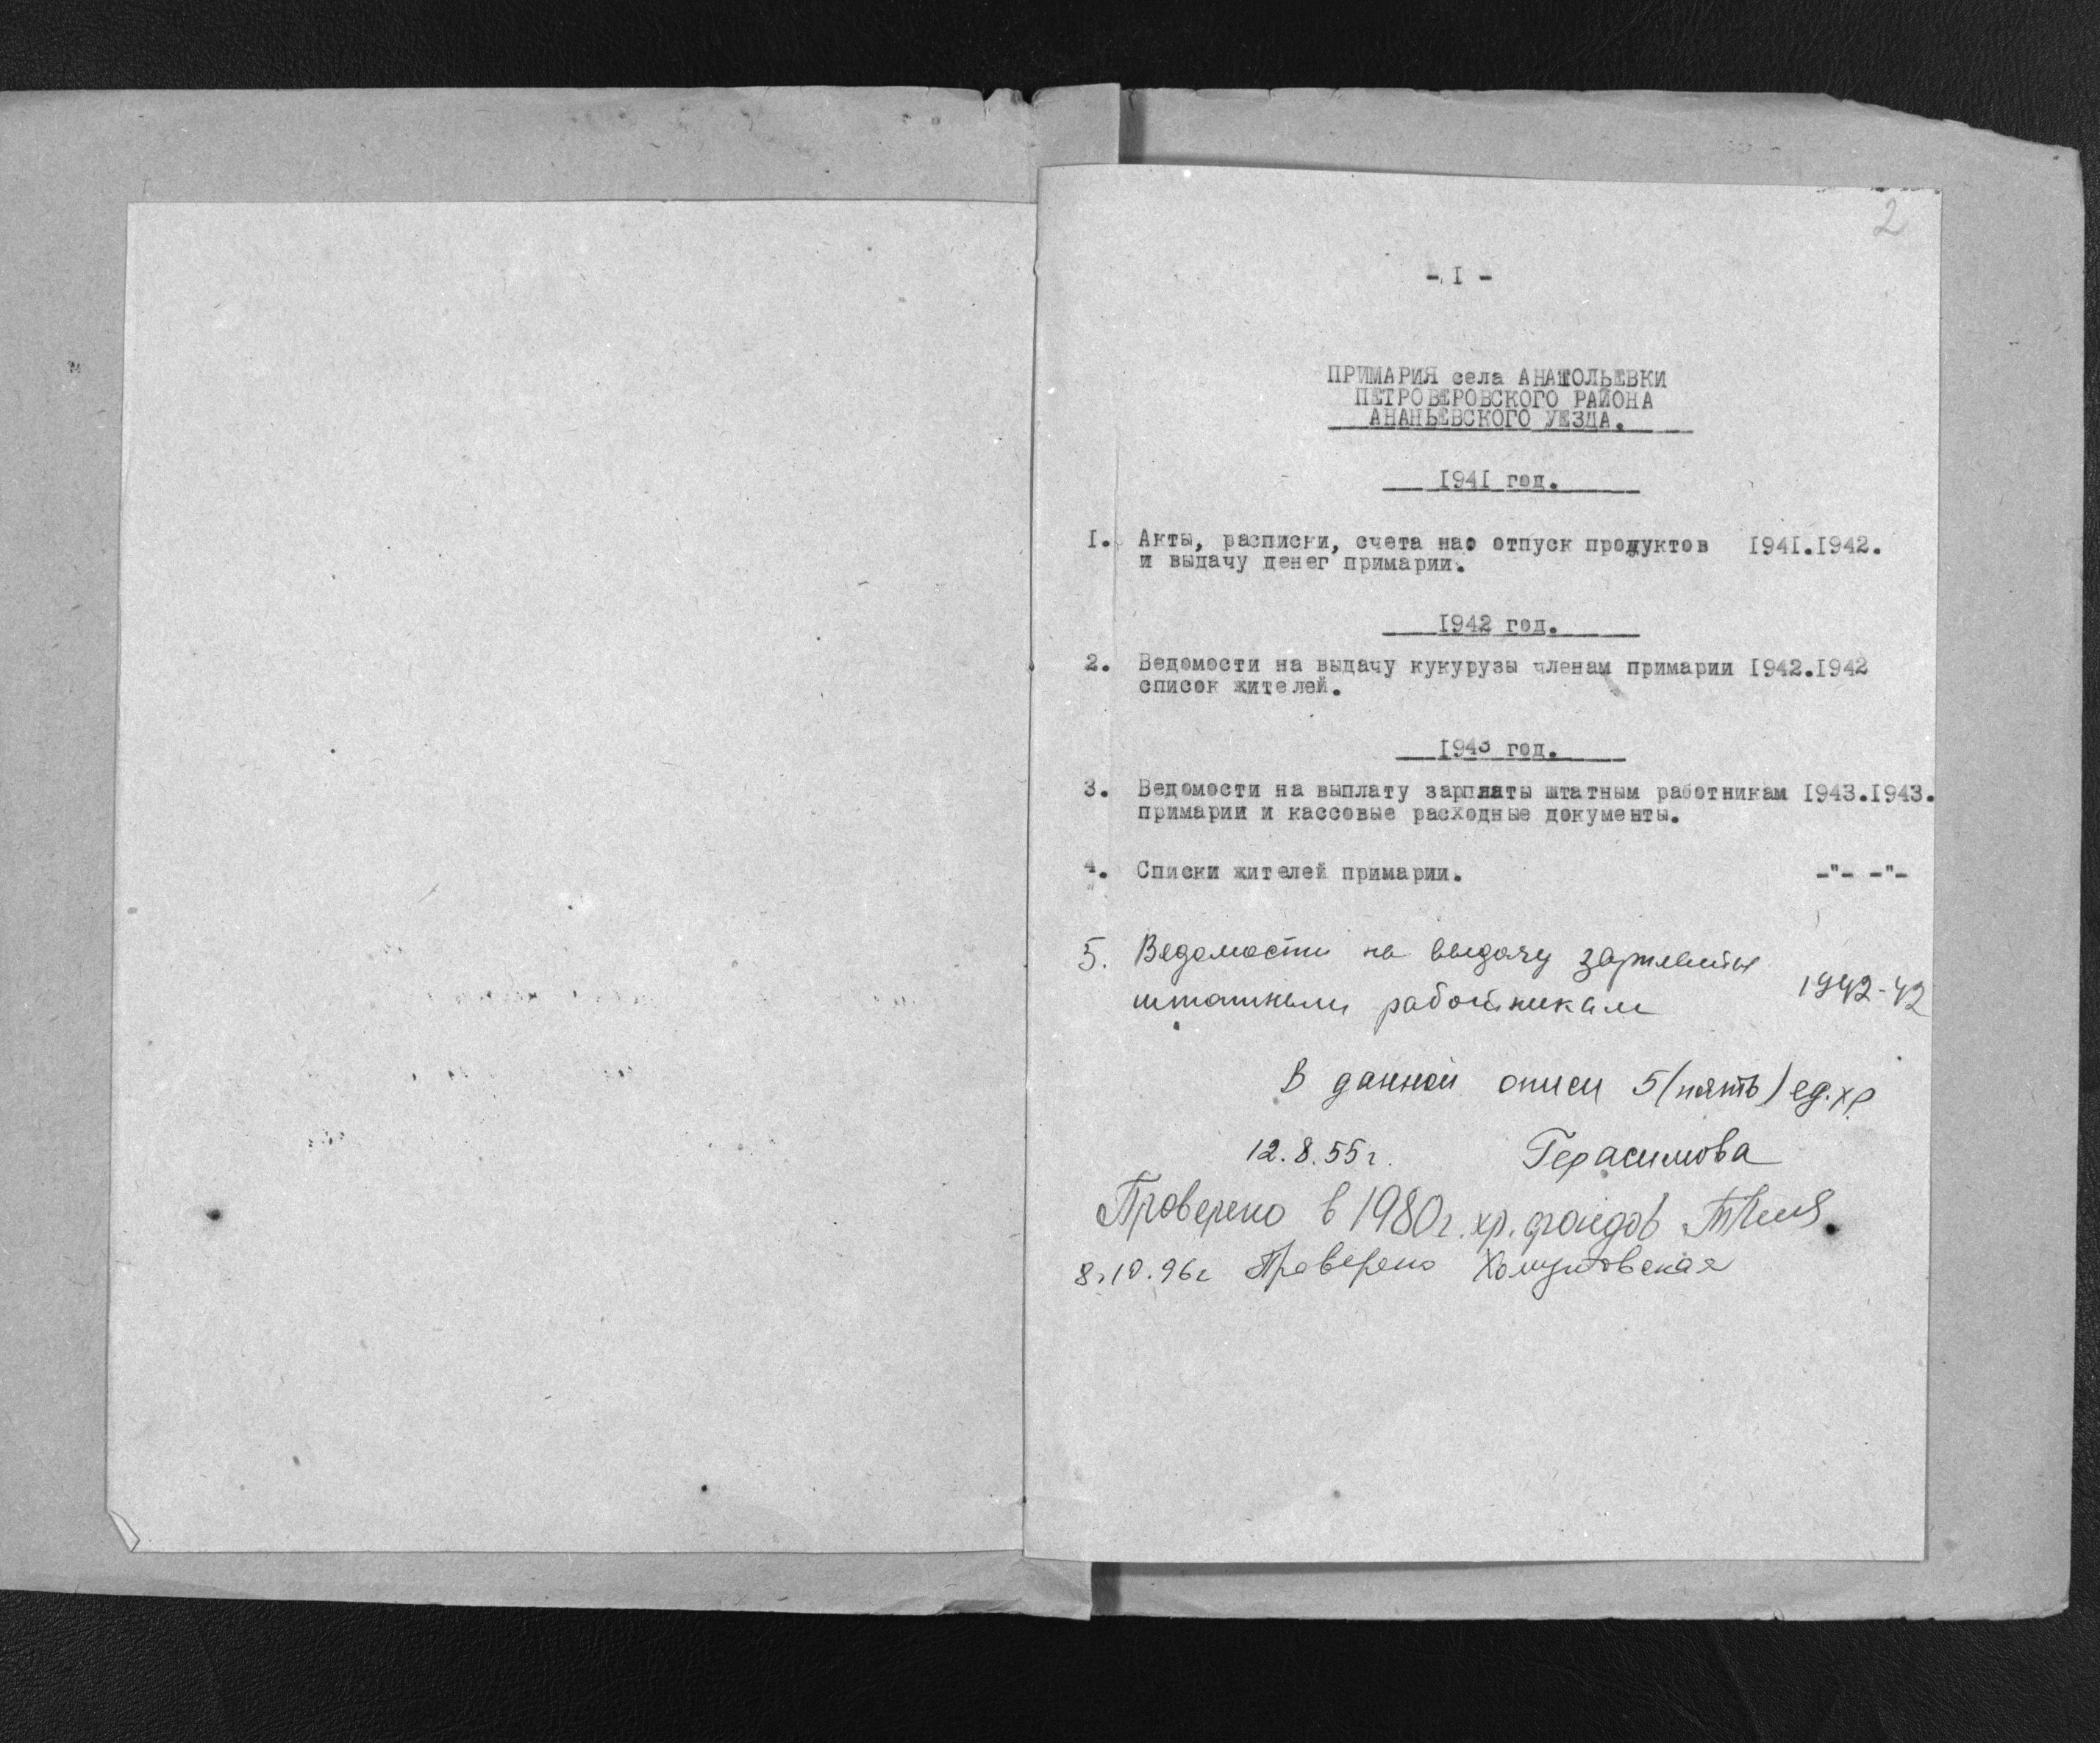 2
- I -
ПРИМАРИЯ села АНАТОЛЬЕВКИ
ПЕТРОВЕРОВСКОГО РАЙОНА
АНАНЬЕВСКОГО УЕЗДА.
I94I год.
I. Акты, расписки, счета на отпуск продуктов I94I.I942.
и выдачу денег примарии.
I942 год.
2. Ведомости на выдачу кукурузы членам примарии I942.I942
список жителей.
I943 год.
3. Ведомости на выплату зарплаты штатным работникам I943.I943.
примарии и кассовые расходные документы.
4. Списки жителей примарии. -"- -"-
5. Ведомости на выдачу зарплаты
штатным работникам 1942-42
В данной описи 5 (пять) ед. хр
12.8.55 г. Герасимова
Проверено в 1980 г. хр. фондов
8.10.96 г Проверено